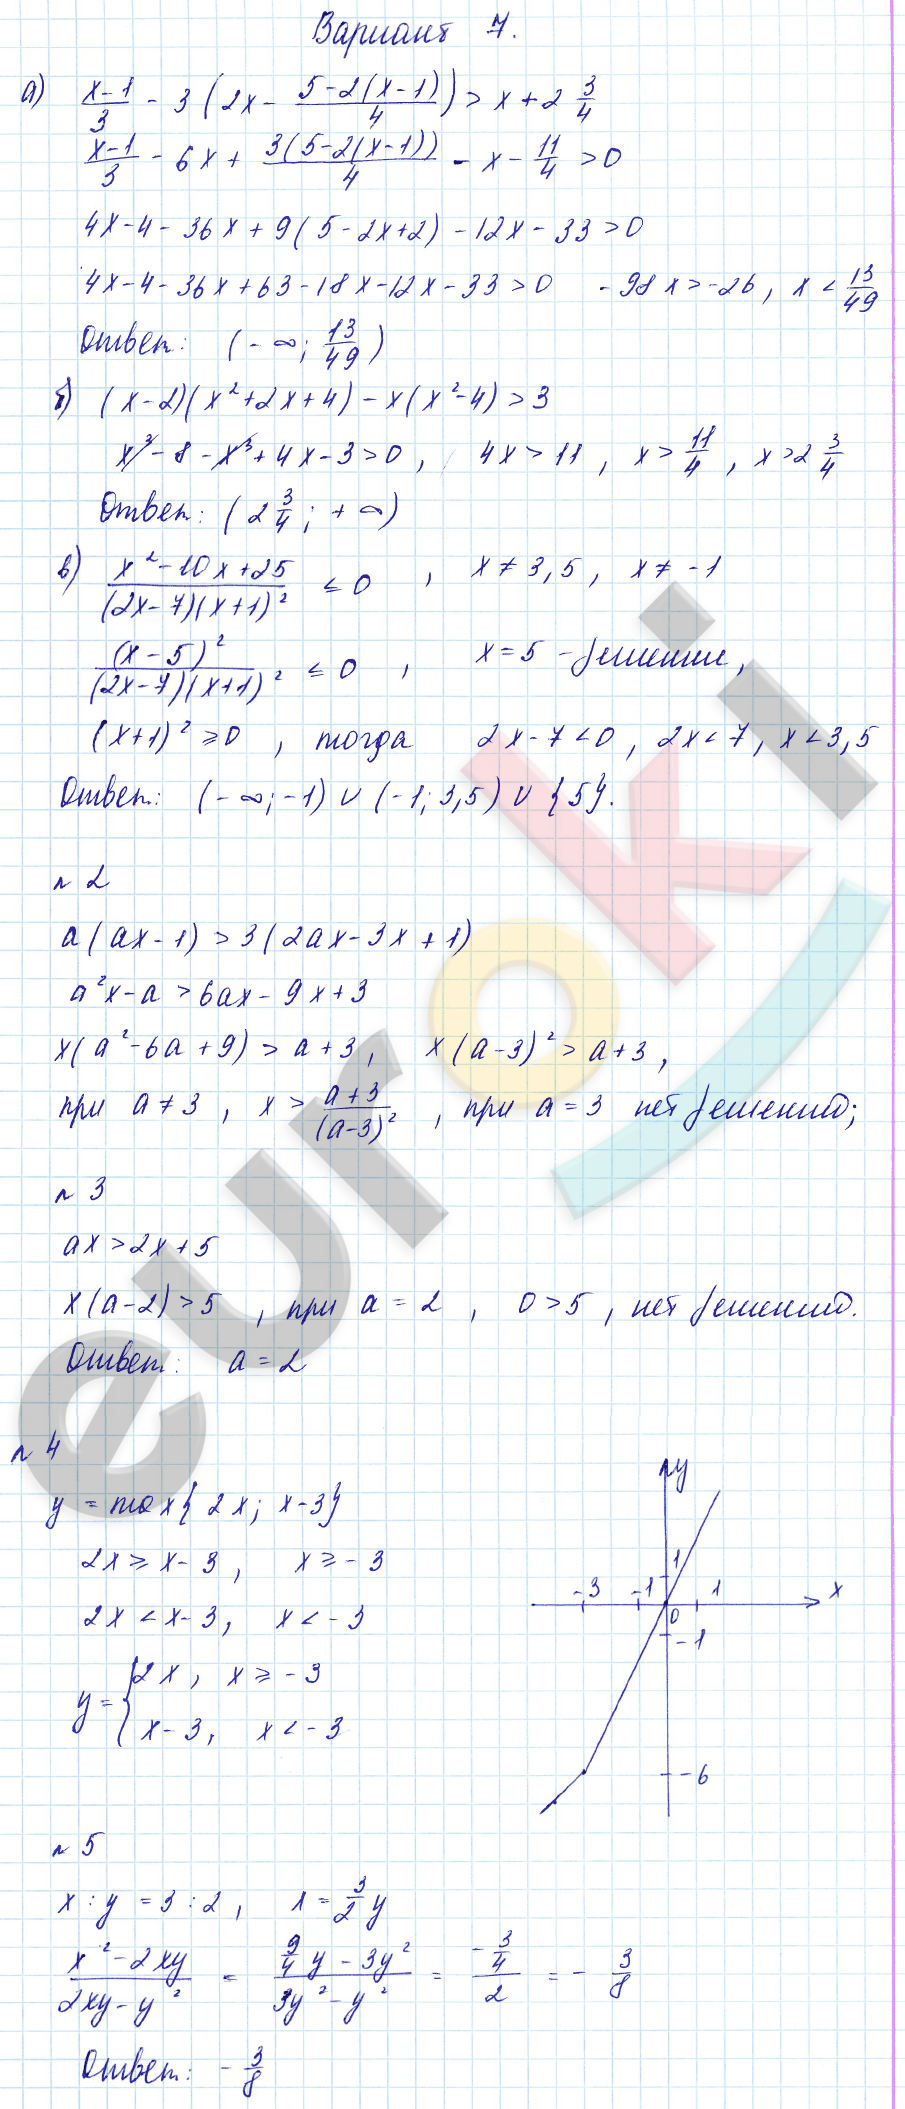 Вариант 7.
а) (x-1)/3 - 3(2x - (5-2(x-1))/4) > x + 2 3/4
(x-1)/3 - 6x + 3(5-2(x-1))/4 - x - 11/4 > 0
4x-4-36x+9(5-2x+2)-12x-33>0
4x-4-36x+63-18x-12x-33>0 -98x>-26, x < 13/49
Ответ: (-∞; 13/49)
б) (x-2)(x²+2x+4)-x(x²-4)>3
x³-8-x³+4x-3>0, 4x>11, x > 11/4, x > 2 3/4
Ответ: (2 3/4; +∞)
в) (x²-10x+25)/((2x-7)(x+1)²) ≤ 0, x≠3,5, x≠-1
(x-5)²/((2x-7)(x+1)²) ≤ 0, x=5 - решение,
(x+1)² ≥ 0, тогда 2x-7<0, 2x<7, x<3,5
Ответ: (-∞;-1) ∪ (-1; 3,5) ∪ {5}.
n 2
a(ax-1)>3(2ax-3x+1)
a²x-a>6ax-9x+3
x(a²-6a+9)>a+3, x(a-3)²>a+3,
при a≠3, x > (a+3)/(a-3)², при a=3 нет решений;
n 3
ax>2x+5
x(a-2)>5, при a=2, 0>5, нет решений.
Ответ: a=2
n 4
y = max{2x; x-3}
2x ≥ x-3, x ≥ -3
2x < x-3, x < -3
y = { 2x, x ≥ -3
x-3, x < -3
y
1
-3 -1 1 x
0
-1
-6
n 5
x : y = 3 : 2, x = 3/2 y
(x²-2xy)/(2xy-y²) = (9/4 y - 3y²)/(3y²-y²) = (-3/4)/2 = - 3/8
Ответ: - 3/8
euroki